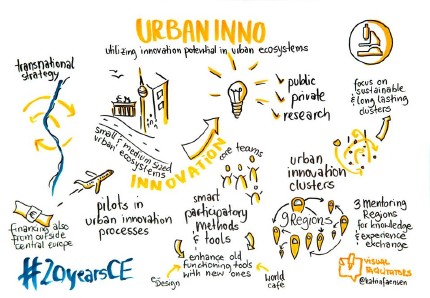 URBAN INNO
utilizing innovation potential in urban ecosystems
transnational
strategy
small & medium sized
urban ecosystems
INNOVATION
public
private
research
focus on
sustainable
& long lasting
clusters
core teams
pilots in
urban innovation
processes
smart
participatory
Methods
& tools
urban
innovation
clusters
9 Regions
3 Mentoring
Regions
for knowledge
& experience
exchange
financing also
from outside
central europe
enhance old
functioning tools
with new ones
Design
world
cafe
#20yearsCE
VISUAL